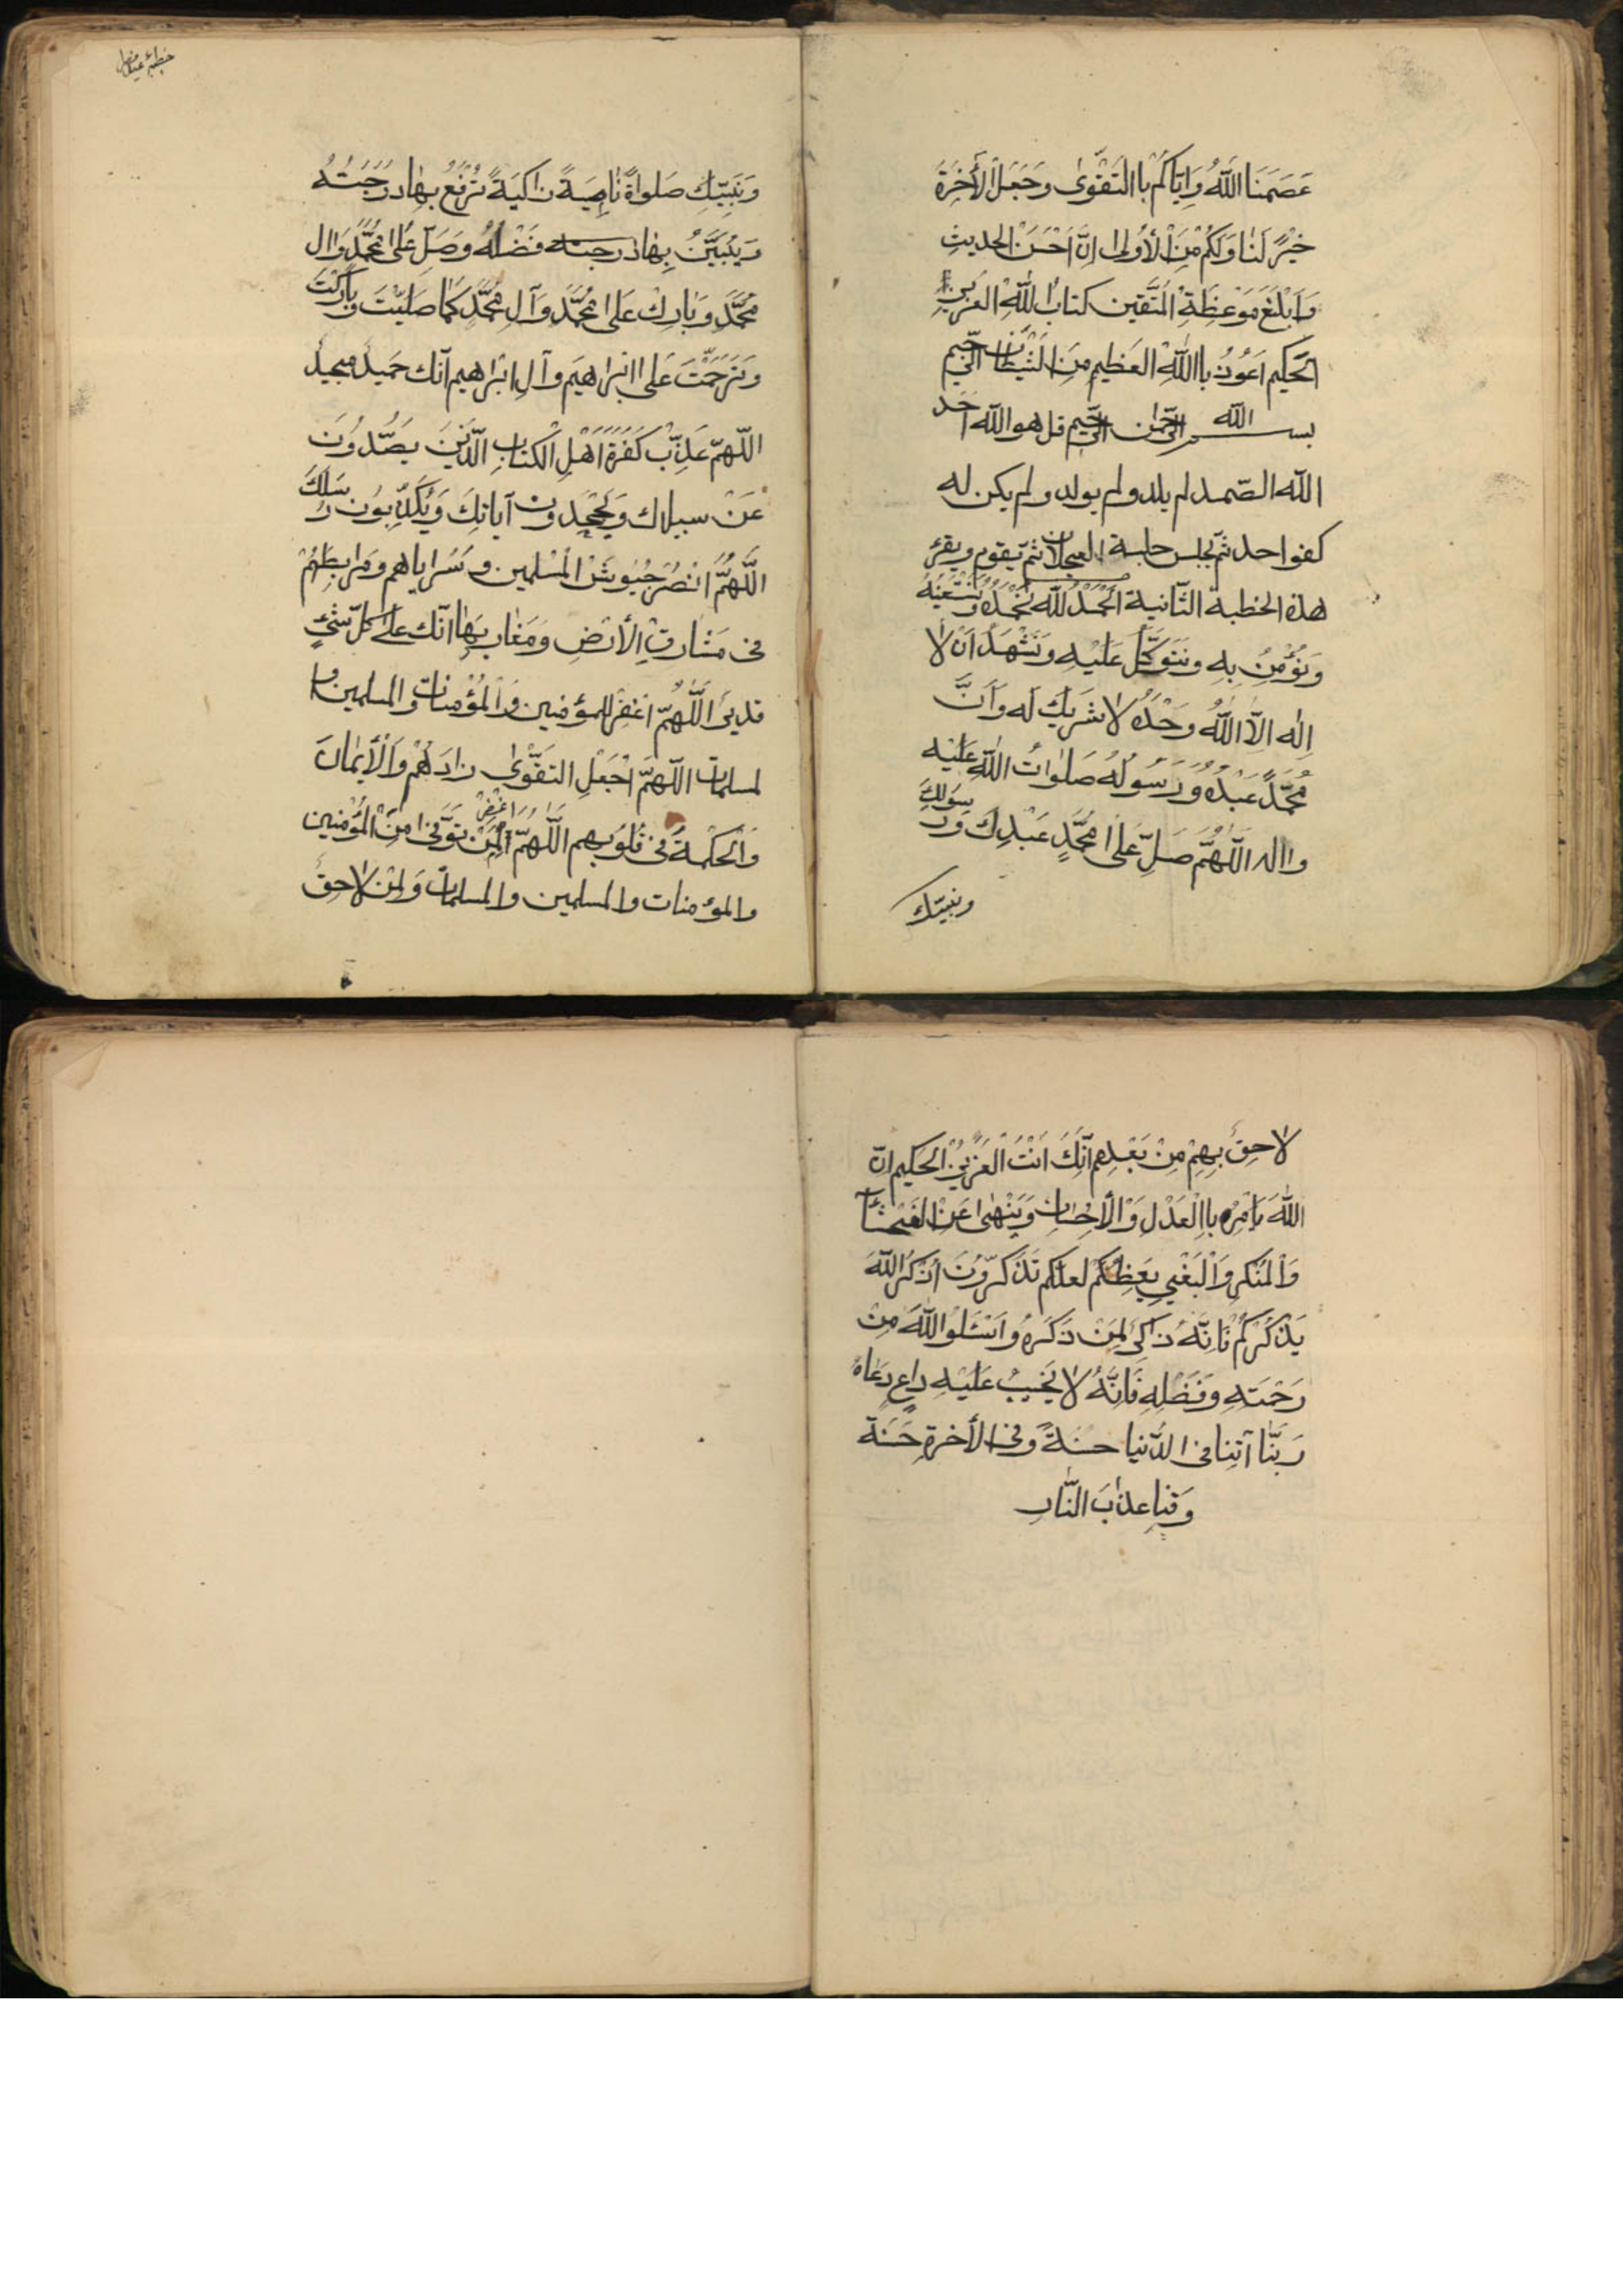 عَصَمَنَا اللَّهُ وَاِيَّاكُمْ بِاالتَّقْوٰى وَجَعَلَ الْأَخِرَةَ
خَيْرٌ لَنٰا وَلَكُمْ مِنَ الْأُولىٰ اِنَّ اَحْسَنَ الحديثِ
وَاَبْلَغَ مَوْعِظَةِ الْمُتَّقين كتابُ اللّٰهِ العزيزِ
الحَكيم اَعُوذُ بااللّٰهِ العَظيم مِنَ الشَّيْطانِ الرَّجيم
بسم الله الرَّحمٰن الرَّحيم قل هو اللّه اَحَد
اللّه الصّمد لم يلد ولم يولد ولم يكن له
كفوا احد ثمّ يجلس جلسة العجلان ثمّ يقوم ويقرء
هذه الخطبة الثّانية اَلْحَمْدُ للّٰه نَحْمَدُهُ وَنَسْتَعِينُهُ
وَنُؤْمِنُ بِهِ ونَتَوَكَّلُ عَلَيْهِ وَنَشْهَدُ اَنْ لاٰ
اِلٰه اِلاَّ اللّٰهُ وَحْدَهُ لاٰ شَريكَ لَه وَاَنَّ
مُحَمَّدًا عَبْدُهُ وَرَسُولُهُ صَلَوٰاتُ اللّٰهِ عَلَيْهِ
واله اَللّٰهُمَّ صَلِّ عَلىٰ مُحَمَّدٍ عَبْدِكَ وَرَسُولِكَ
ونبيّك
وَنَبِيِّكَ صَلوٰاةً نٰامِيَةً زٰاكِيَةً تُرْفَعُ بِهٰا دَرَجَتُهُ
وَيُبَيَّنُ بِهٰا درجته فَضْلُهُ وَصَلِّ عَلىٰ مُحَمَّدٍ وَاٰلِ
مُحَمَّدٍ وَبٰارِكْ عَلىٰ مُحَمَّدٍ وَآلِ مُحَمَّدٍ كَمٰا صَلَّيْتَ وبارَكْتَ
وَتَرَحَّمْتَ عَلىٰ اِبْرٰاهيمَ وآلِ اِبْرٰاهيم اِنّك حَميدٌ مجيدٌ
اللّهمّ عَذِّبْ كَفَرَةَ اَهْلِ الْكتابِ الّذَينَ يَصُدُّونَ
عَنْ سبيلك وَيَجْحِدُون آياتِكَ وَيُكَذِّبُونَ رُسُلَكَ
اَللّٰهُمَّ انْصُرْ جُيُوشَ الْمُسْلمين وسَراياهم ومُرابطيهُمْ
فى مَشٰارِقِ الْأَرْضِ وَمَغٰارِبِهٰا اِنّك عَلىٰ كلّ شَيْئٍ
قديرٌ اَللّٰهُمّ اغْفِرْ للمؤمِنين وَالْمُؤْمِنات والمسلمين وا
لمسلمات اللّهمّ اجْعَلِ التَّقْوىٰ زادَهُمْ وَالْأيمٰانَ
وَالْحكْمَةَ فى قُلُوبِهِم اَللّٰهُمّ وَاغْفِرْ لِمَنْ تَوَفّىٰ مِنَ الْمُؤْمِنين
والمؤمنات والمسلمين والمسلمات وَلِمَنْ لاٰحِقٌ
لاٰحِقٌ بِهِمْ مِنْ بَعْدِهِم اِنَّكَ اَنْتَ العَزيزُ الحَكيم انّ
اللّٰهَ يَاْمُرُ بِاالْعَدْلِ وَالْأِحْسانِ وَيَنْهىٰ عَنِ الفَحْشآءِ
وَالْمُنْكَرِ وَالْبَغْيِ يَعِظُكُمْ لعلّكم تَذَكَّرُونَ اُذْكُرُ اللّٰهَ
يَذْكُرْكُمْ فَاِنَّهُ ذاكِرٌ لِمَنْ ذَكَرَهُ واَسْئَلُوا اللّٰهَ مِنْ
رَحْمَتِهِ وفَضْلِهِ فَاِنَّهُ لاٰ يَخيبُ عَلَيْهِ داعٍ دَعٰاهُ
رَبَّنٰا آتِنا فى الدّنيا حسنةً وفى الأخرةِ حَسَنَة
وَقِنا عذٰابَ النّٰارِ